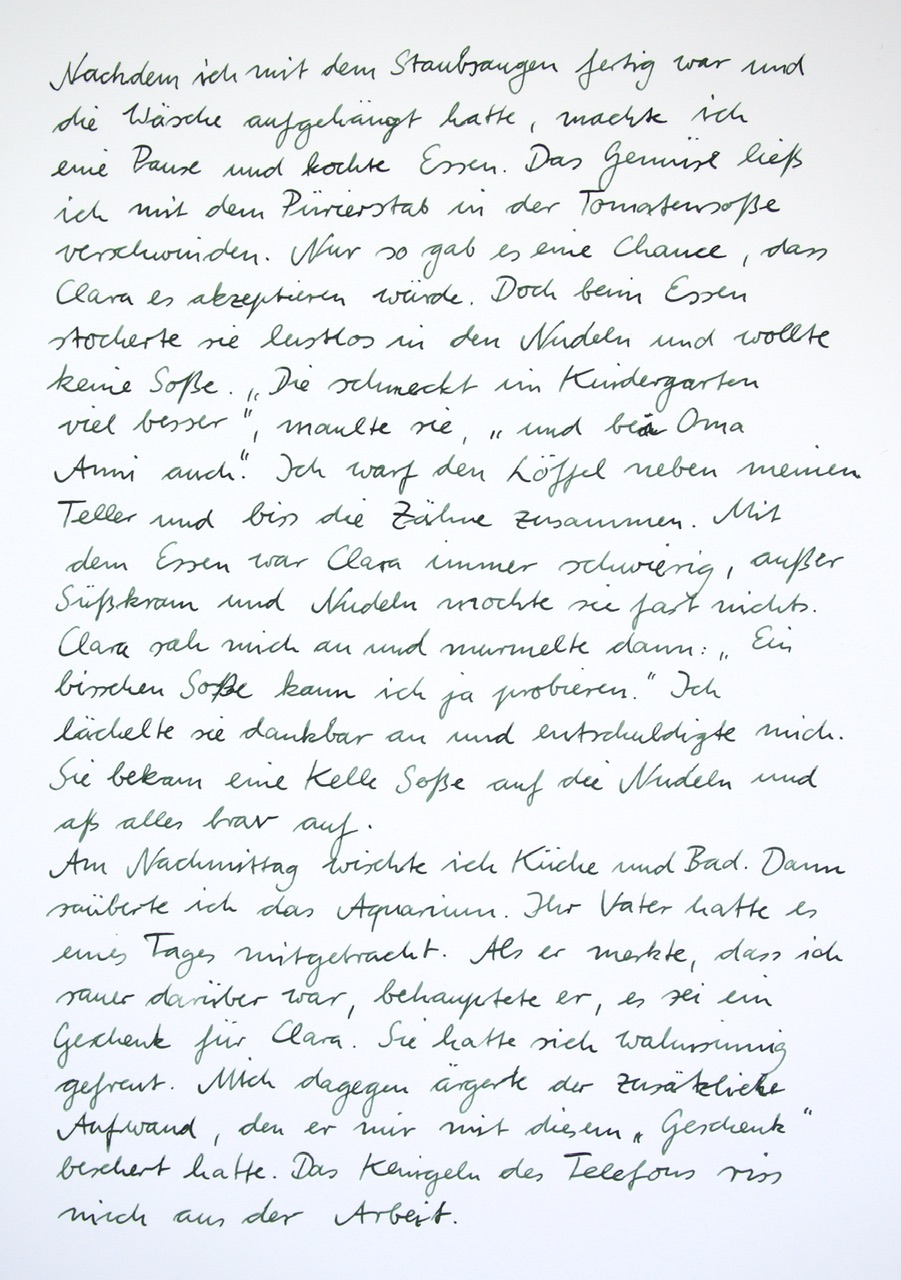 Nachdem ich mit dem Staubsaugen fertig war und
die Wäsche aufgehängt hatte, machte ich
eine Pause und kochte Essen. Das Gemüse ließ
ich mit dem Pürierstab in der Tomatensoße
verschwinden. Nur so gab es eine Chance, dass
Clara es akzeptieren würde. Doch beim Essen
stocherte sie lustlos in den Nudeln und wollte
keine Soße. „Die schmeckt im Kindergarten
viel besser“, maulte sie, „und bei Oma
Anni auch“. Ich warf den Löffel neben meinen
Teller und biss die Zähne zusammen. Mit
dem Essen war Clara immer schwierig, außer
Süßkram und Nudeln mochte sie fast nichts.
Clara sah mich an und murmelte dann: „Ein
bisschen Soße kann ich ja probieren.“ Ich
lächelte sie dankbar an und entschuldigte mich.
Sie bekam eine Kelle Soße auf die Nudeln und
aß alles brav auf.
Am Nachmittag wischte ich Küche und Bad. Dann
säuberte ich das Aquarium. Ihr Vater hatte es
eines Tages mitgebracht. Als er merkte, dass ich
sauer darüber war, behauptete er, es sei ein
Geschenk für Clara. Sie hatte sich wahnsinnig
gefreut. Mich dagegen ärgerte der zusätzliche
Aufwand, den er mir mit diesem „Geschenk“
beschert hatte. Das Klingeln des Telefons riss
mich aus der Arbeit.